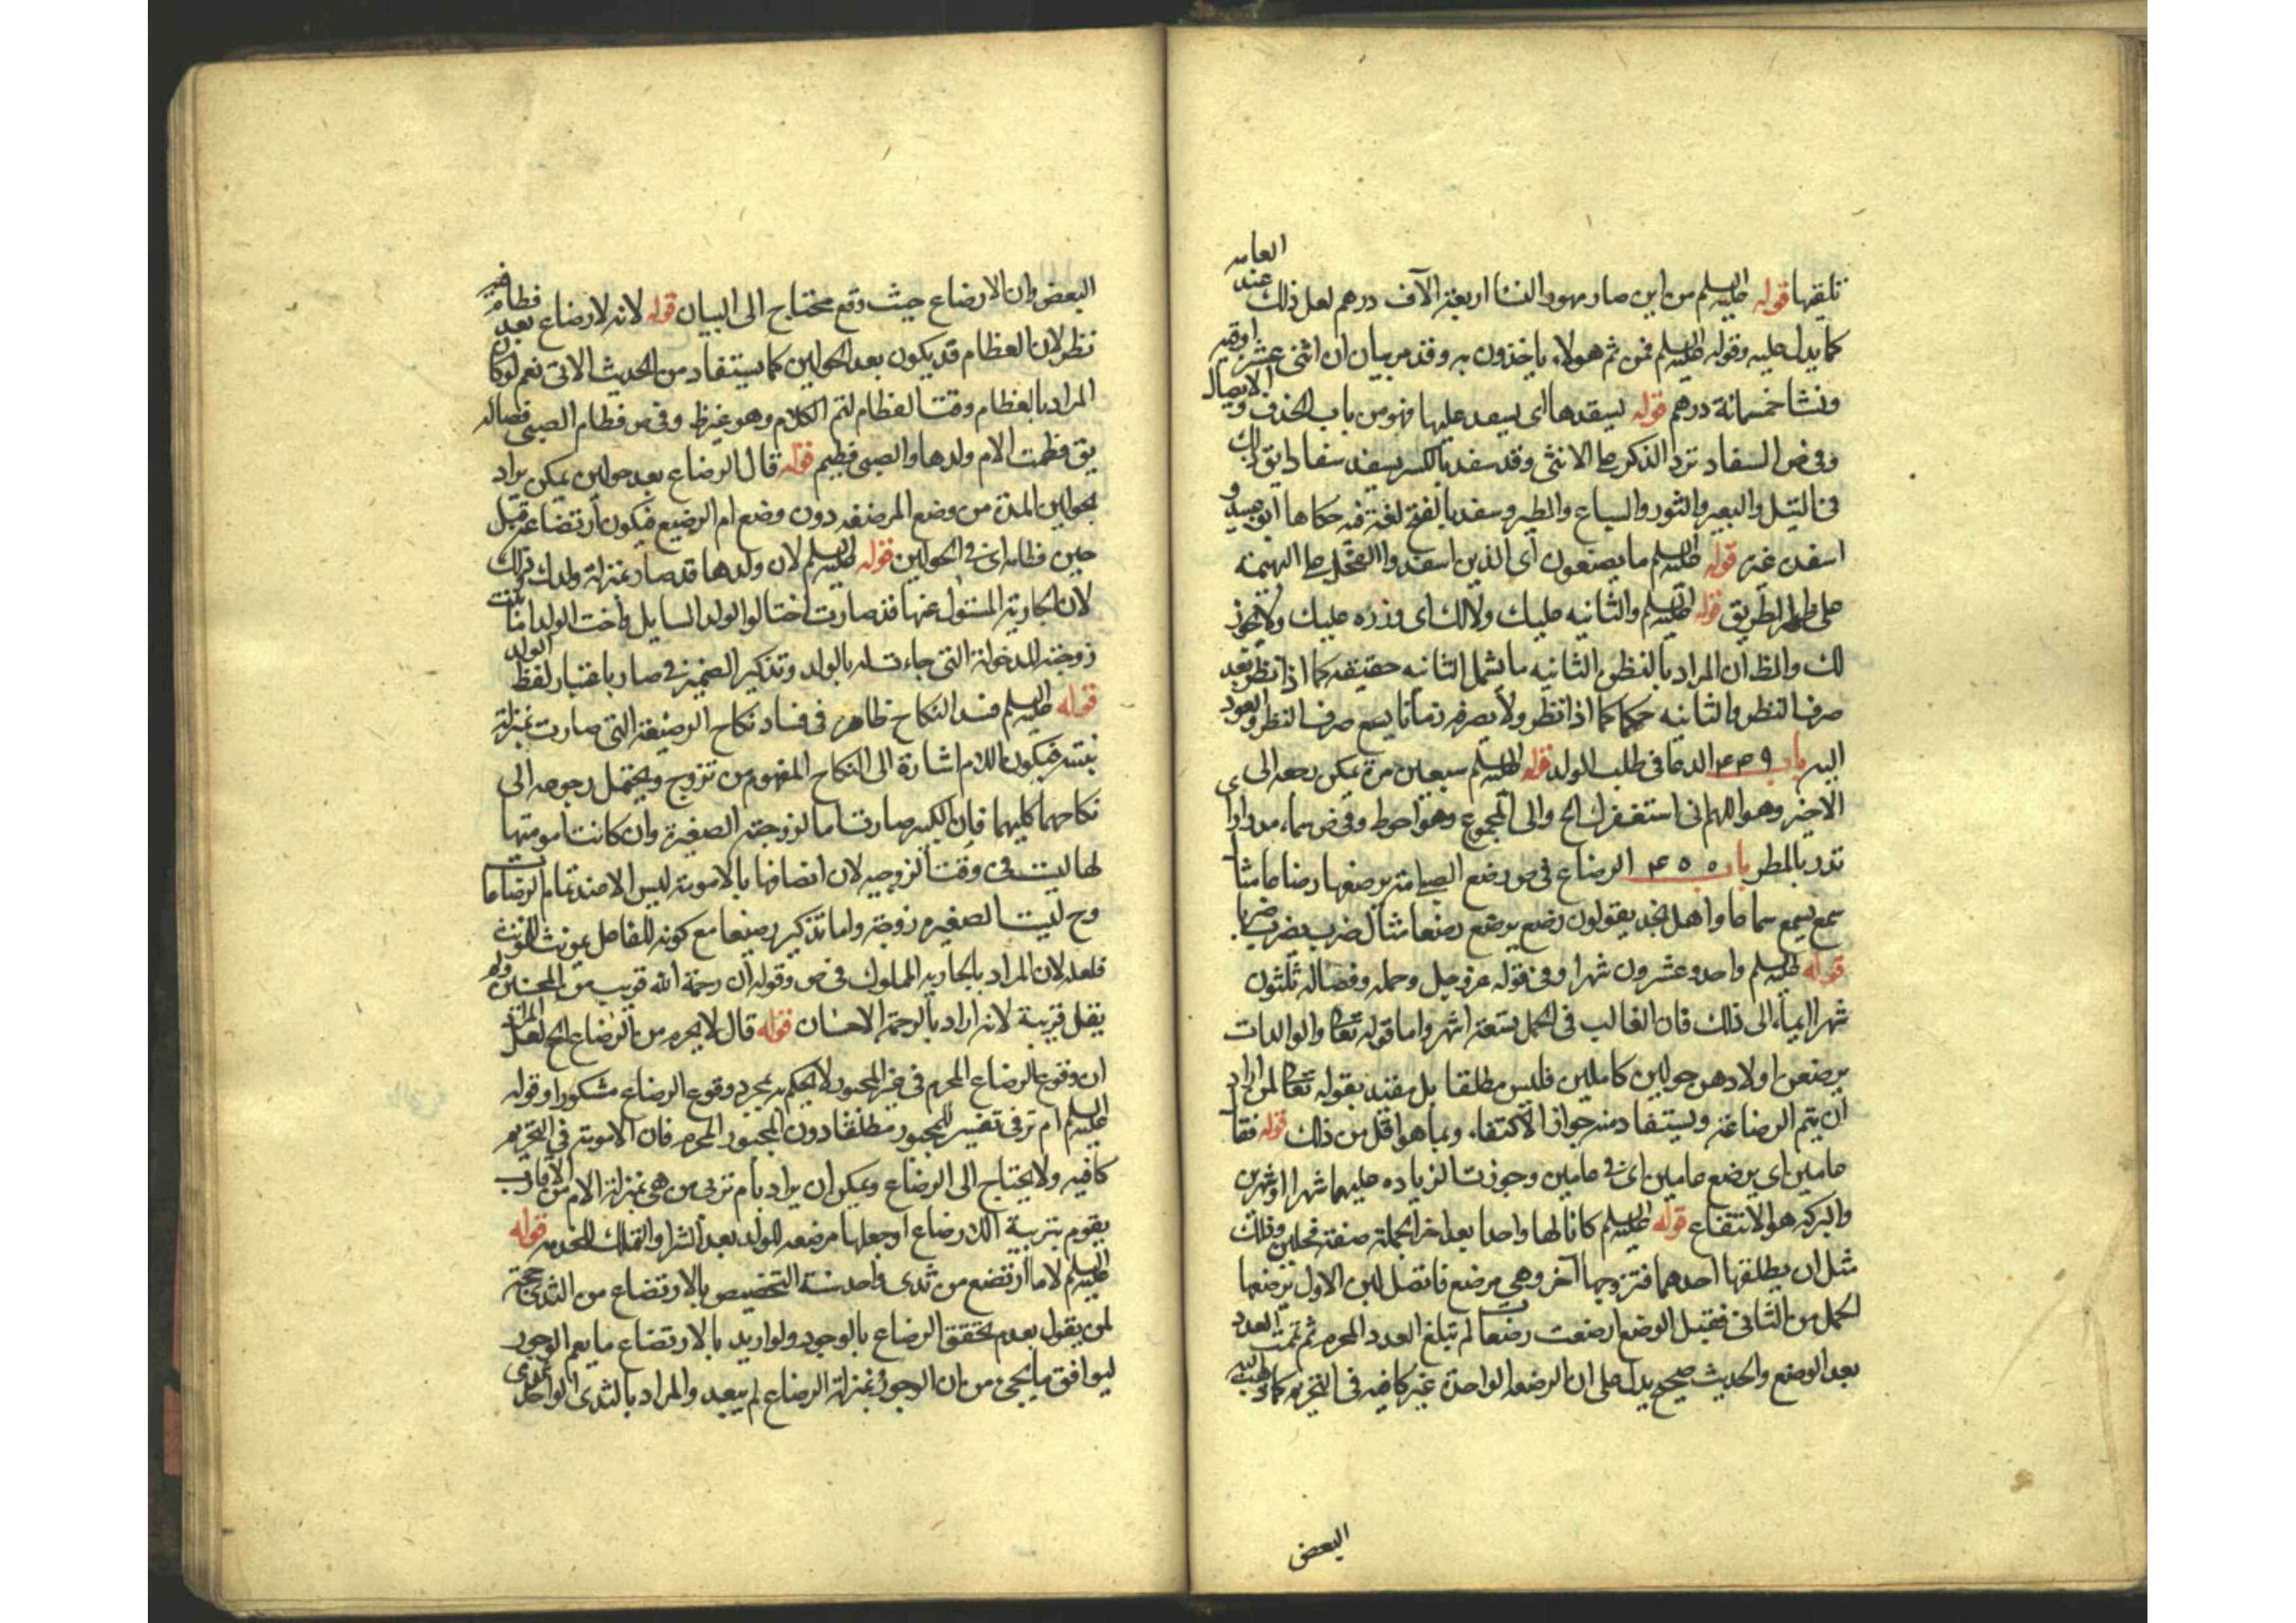 تلقيها قوله عليه السلم من اين صار مهور النسا اربعة الآف درهم لعل ذلك عند العامه
كما يدل عليه وقوله عليه السلم فمن ثم هولاء ياخذون به وقد مر بيان ان اثنى عشر اوقيه
ونشا خمسمائة درهم قوله يسفدها اى يسفد عليها فهو من باب الحذف والايصال
وفى ص السفاد نزو الذكر على الانثى وقد سفد بالكسر يسفد سفادا يق ذلك
فى التيس والبعير والثور والسباع والطير وسفد بالفتح لغة فيه حكاها ابو عبيده و
اسفده غيره قوله عليه السلم ما يصنعون اى الذين اسفدوا الفحل على البهيمه
على ظهر الطريق قوله عليه السلم والثانيه عليك ولا لك اى وزره عليك ولا يجوز
لك والظ ان المراد بالنظره الثانيه ما يشمل الثانيه حقيقه كما اذا نظر بعد
صرف النظر والثانيه حكما كما اذا نظر ولا يصرفه زمانا يسع صرف النظر والعود
اليه باب ٤٣٩ الدعا فى طلب الولد قوله عليه السلم سبعين مرة يمكن رجعه الى
الاخير وهو اللهم انى استغفرك الخ والى المجموع وهو احوط وفى ص سماء مدرارا
تدر بالمطر باب ٤٥٥ الرضاع فى ص رضع الصبى امه يرضعها رضاعا مثل
سمع يسمع سماعا واهل نجد يقولون رضع يرضع رضعا مثال ضرب يضرب ضربا
قوله عليه السلم واحد وعشرون شهرا وفى قوله عز وجل وحمله وفصاله ثلثون
شهرا ايماء الى ذلك فان الغالب فى الحمل تسعة اشهر واما قوله تعالى والوالدات
يرضعن اولادهن حولين كاملين فليس مطلقا بل مقيد بقوله تعالى لمن اراد
ان يتم الرضاعة ويستفاد منه جواز الاكتفاء بما هو اقل من ذلك قوله فقال
عامين اى يرضع عامين اى فى عامين وجوزت الزياده عليهما شهرا او شهرين
والبركه هو الانتفاع قوله عليه السلم كانا لها واحدا بعد اخر الجملة صفة فحلين وذلك
مثل ان يطلقها احدهما فتزوجها آخر وهى مرضع فاتصل لبن الاول برضعها
الحمل من الثانى فقبل الوضع ارضعت رضعات لم تبلغ العدد المحرم ثم تمت العدد
بعد الوضع والحديث صحيح يدل على ان الرضعه الواحدة غير كافيه فى التحريم كما ذهب اليه
البعض
البعض وان الارضاع حيث وقع محتاج الى البيان قوله لانه لا رضاع بعد فطام فيه
نظر لان الفطام قد يكون بعد الحولين كما يستفاد من الحديث الاتى نعم لو كان
المراد بالفطام وقت الفطام لتم الكلام وهو غير ظ وفى ص فطام الصبى فصاله
يق فطمت الام ولدها والصبى فطيم قوله قال الرضاع بعد حولين يمكن يراد
بحولين المدة من وضع المرضعه دون وضع ام الرضيع فيكون ارتضاعه قبل
حين فطامه اى فى الحولين قوله عليه السلم لان ولدها قد صار بمنزلة ولدك وذلك
لان الجارية المسئول عنها قد صارت اختا لو الولد السايل واخت الولد اما بنت
زوجته المدخولة التى جاءت له بالولد وتذكير الضمير فى صار باعتبار لفظ الولد
قوله عليه السلم فسد النكاح ظاهر فى فساد نكاح الرضيعة التى صارت بمنزلة
بنته فيكون اللام اشارة الى النكاح المفهوم من تزوج ويحتمل رجوعه الى
نكاحهما كليهما فان الكبيره صارت اما لزوجته الصغيرة وان كانت امومتها
لها ليست فى وقت الزوجيه لان اتصافها بالامومة ليس الا عند تمام الرضاعات
وح ليست الصغيره زوجة واما تذكير رضيعا مع كونه للفاصل بمونث للمونث
فلعله لان المراد بالجاريه المملوك فى ص وقوله ان رحمة الله قريب من المحسنين ولم
يقل قريبة لانه اراد بالرحمة الاحسان قوله قال لا يحرم من الرضاع الخ لعل المراد
ان وقوع الرضاع المحرم فى غير المجبور لا يحكم به بمجرد وقوع الرضاع مشكورا وقوله
عليه السلم ام تربى تفسير للمجبور مطلقا دون المجبور المحرم فان الامومة فى التحريم
كافيه ولا يحتاج الى الرضاع ويمكن ان يراد بام تربى من هى بمنزلة الام من الاقارب
يقوم بتربية الارضاع او جعلها مرضعه للولد بعد الشرا والتملك للخدمه قوله
عليه السلم لا ما ارتضع من ثدى واحد سنة التخصيص بالارتضاع من الثدى حجة
لمن يقول بعدم تحقق الرضاع بالوجور ولو اريد بالارتضاع ما يعم الوجور
ليوافق ما يجىء من ان الوجور بمنزلة الرضاع لم يبعد والمراد بالثدى الواحد